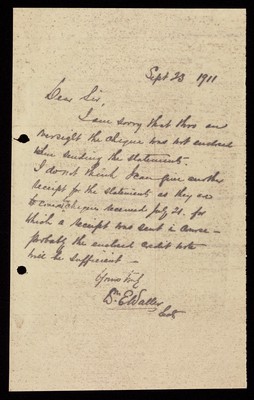 Sept 23 1911
Dear Sir,
I am sorry that thro an
oversight the cheque was not enclosed
when sending the statements.
I do not think I can give another
receipt for the statements as they are
to cheque received July 21. for
which a receipt was sent in course -
probably the enclosed credit note
will be sufficient -
Yours truly
Wm. E Waller